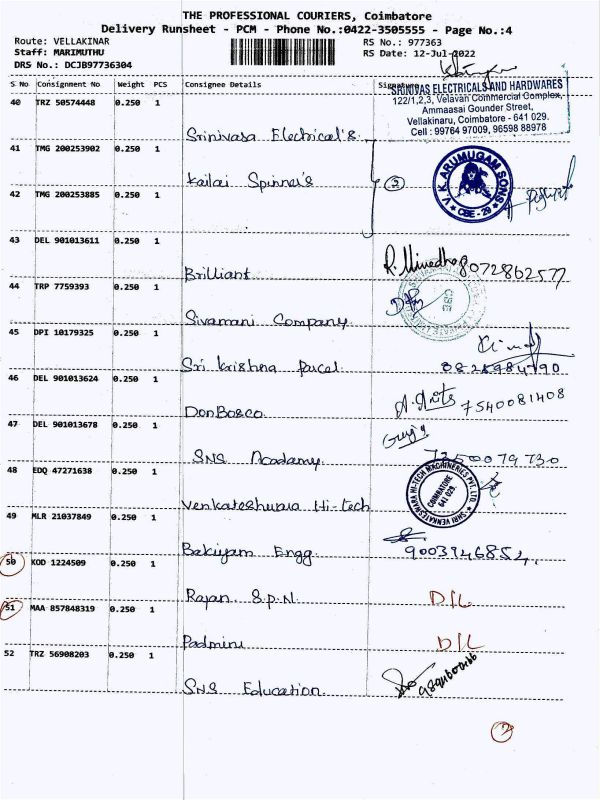 THE PROFESSIONAL COURIERS, Coimbatore
Delivery Runsheet - PCM - Phone No.:0422-3505555 - Page No.:4
Route: VELLAKINAR RS No.: 977363
Staff: MARIMUTHU RS Date: 12-Jul-2022
DRS No.: DCJB97736304
S No Consignment No Weight PCS Consignee Details Signature
SRINIVAS ELECTRICALS AND HARDWARES
122/1,2,3, Velavan Commercial Complex,
Ammaasai Gounder Street,
Vellakinaru, Coimbatore - 641 029.
Cell : 99764 97009, 96598 88978
40 TRZ 50574448 0.250 1
Srinivasa Electrical's
41 TMG 200253902 0.250 1
Kailai Spinner's
② V.K. ARUMUGAM SONS
★ CBE - 29 ★
42 TMG 200253885 0.250 1
43 DEL 901013611 0.250 1
Brilliant 8072862577
44 TRP 7759393 0.250 1
Sivamani Company
CBE
45 DPI 10179325 0.250 1
Sri Krishna Parcel
46 DEL 901013624 0.250 1
DonBosco 7540081408
47 DEL 901013678 0.250 1
SNS Academy
48 EDQ 47271638 0.250 1
Venkateshwara Hi-tech
SHRI VENKATESWARA HI-TECH MACHINERIES PVT. LTD.
COIMBATORE
641 029.
49 MLR 21037849 0.250 1
Bakiyam Engg.
50 KOD 1224509 0.250 1
Rajan S.P.N. D/L
51 MAA 857848319 0.250 1
Padmini D/L
52 TRZ 56908203 0.250 1
SNS Education